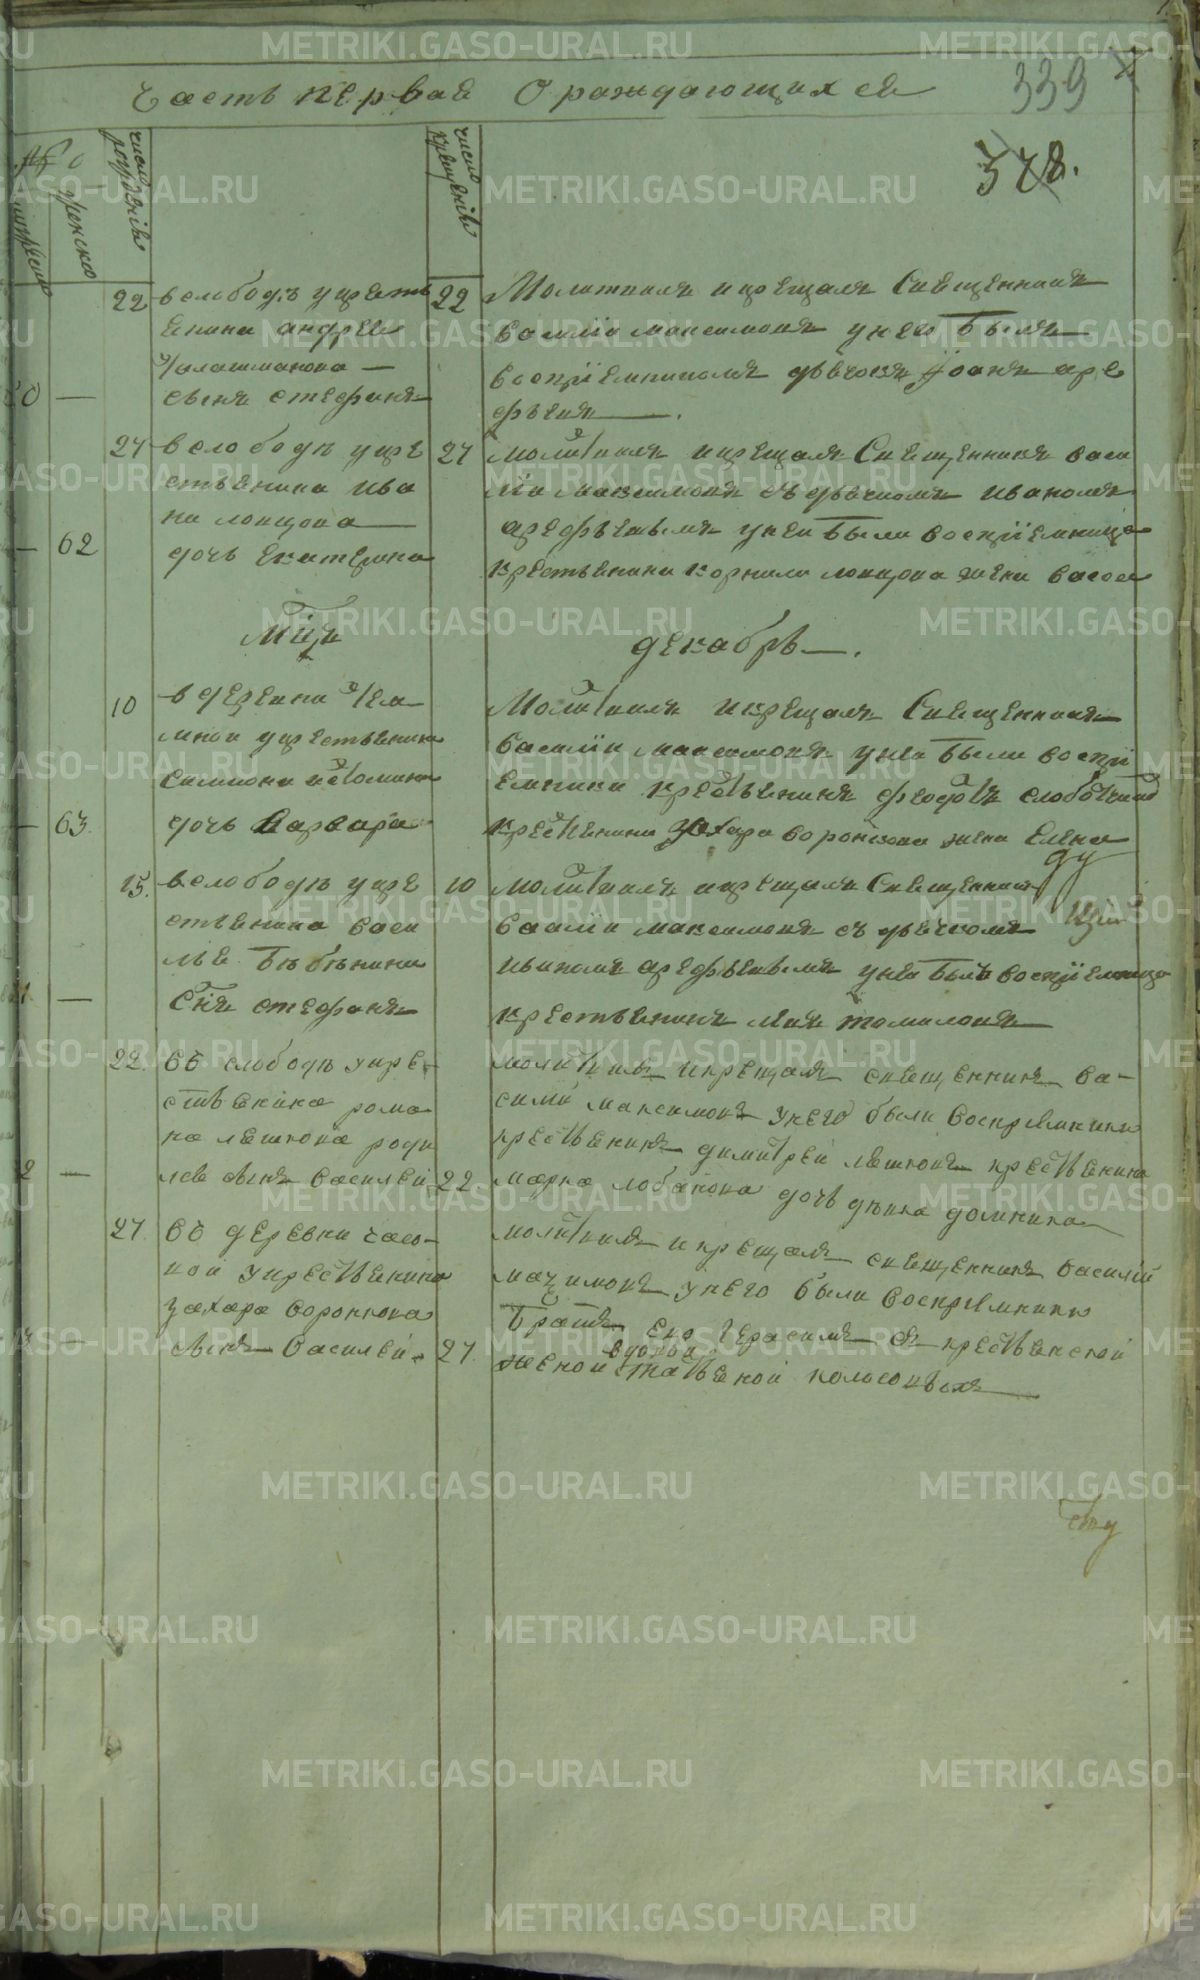 Часть первая О раждающихся
339
378.
число рождения
число крещения
женска
22 в слободѣ у крестъ
янина андрея
Калашманова —
сынъ стефанъ
22 Молитвилъ и крещалъ Священникъ
василіи максимовъ у него былъ
воспріемникомъ дьячокъ Іоанъ аре
фьевъ
27 в слободѣ у кре
стьянина ива
на лонцова
62 дочь екатерина
27 молитвилъ и крещалъ Священникъ васи
ліи максимовъ съ дьячкомъ иваномъ
арефьевымъ у неи были воспріемница
крестьянина корнила лонцова жена васса
Мцъ декабрь.
10 в деревни
мнои у крестьянина
симиона истомина
63. дочь Варвара
Молитвилъ и крещалъ Священникъ
василіи максимовъ у неи были воспрі
емники крестьянинъ федотъ
крестьянина Захара воронкова жена Елена
15. в слободѣ у кре
стьянина васи
лье бѣбѣнина
Снъ стефанъ
10 молитвилъ и крещалъ Священникъ
василіи максимовъ съ дьячкомъ
иваномъ арефьевымъ у неи былъ воспріемница
крестьянинъ томиловъ
22. въ слободѣ у кре-
стьянина рома
на лешкова роди
лся сынъ василеи
22 молитвилъ и крещалъ священникъ ва-
силии максимовъ у него были воспремники
крестьянинъ димитреи лешковъ крестьянина
марка лобанова дочь дѣвка домника
27. въ деревни часо-
вой у крестьянина
захара воронкова
сынъ василеи
27. молитвилъ и крещалъ священникъ василий
мазимовъ у него были воспремники
братъ его Герасимъ съ крестьянской
вдовои
женой татьяной колосовыхъ